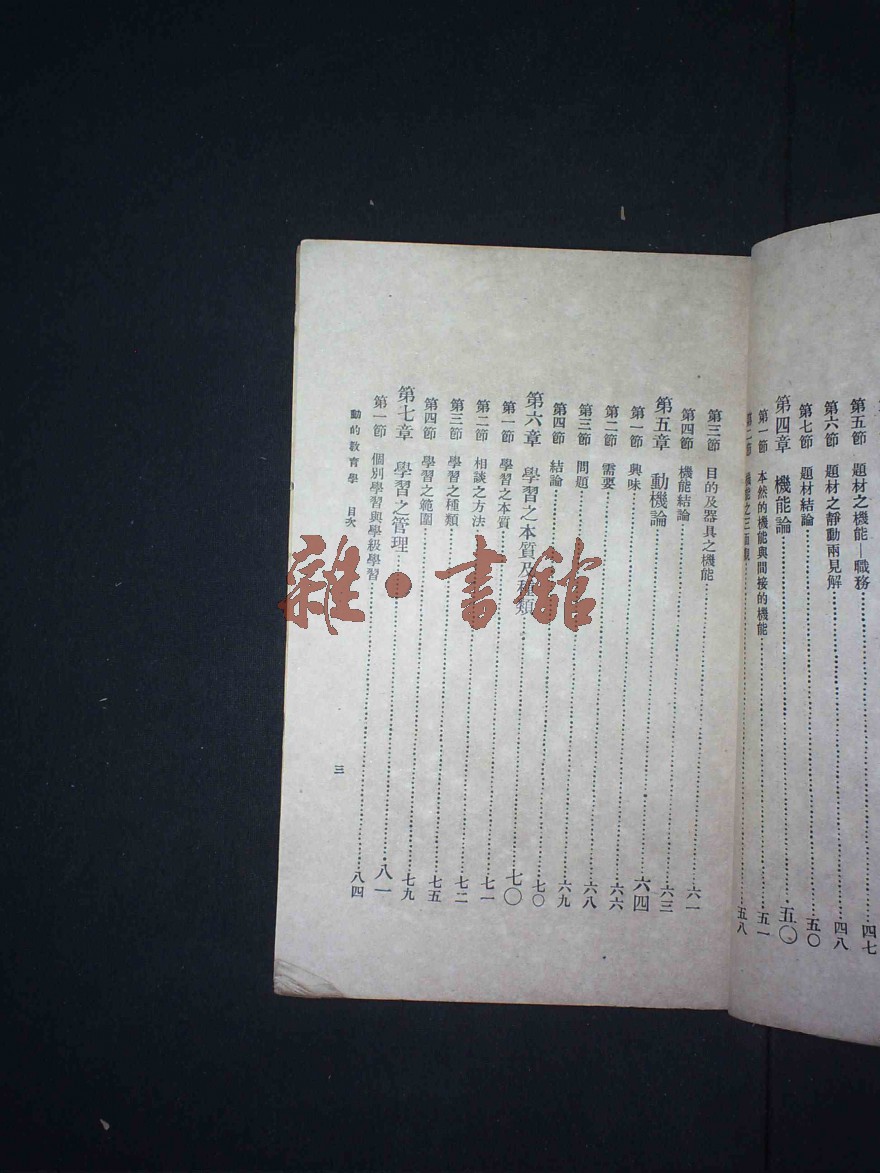 第五節 題材之機能—職務……四七
第六節 題材之靜動兩見解……四八
第七節 題材結論……五〇
第四章 機能論……五〇
第一節 本然的機能與間接的機能……五一
第二節 機能之三面觀……五八
第三節 目的及器具之機能……六一
第四節 機能結論……六三
第五章 動機論……六四
第一節 興味……六六
第二節 需要……六八
第三節 問題……六九
第四節 結論……七〇
第六章 學習之本質及種類……七〇
第一節 學習之本質……七一
第二節 相談之方法……七二
第三節 學習之種類……七五
第四節 學習之範圍……七九
第七章 學習之管理……八一
第一節 個別學習與學級學習……八四
動的教育學 目次 三
雜·書館